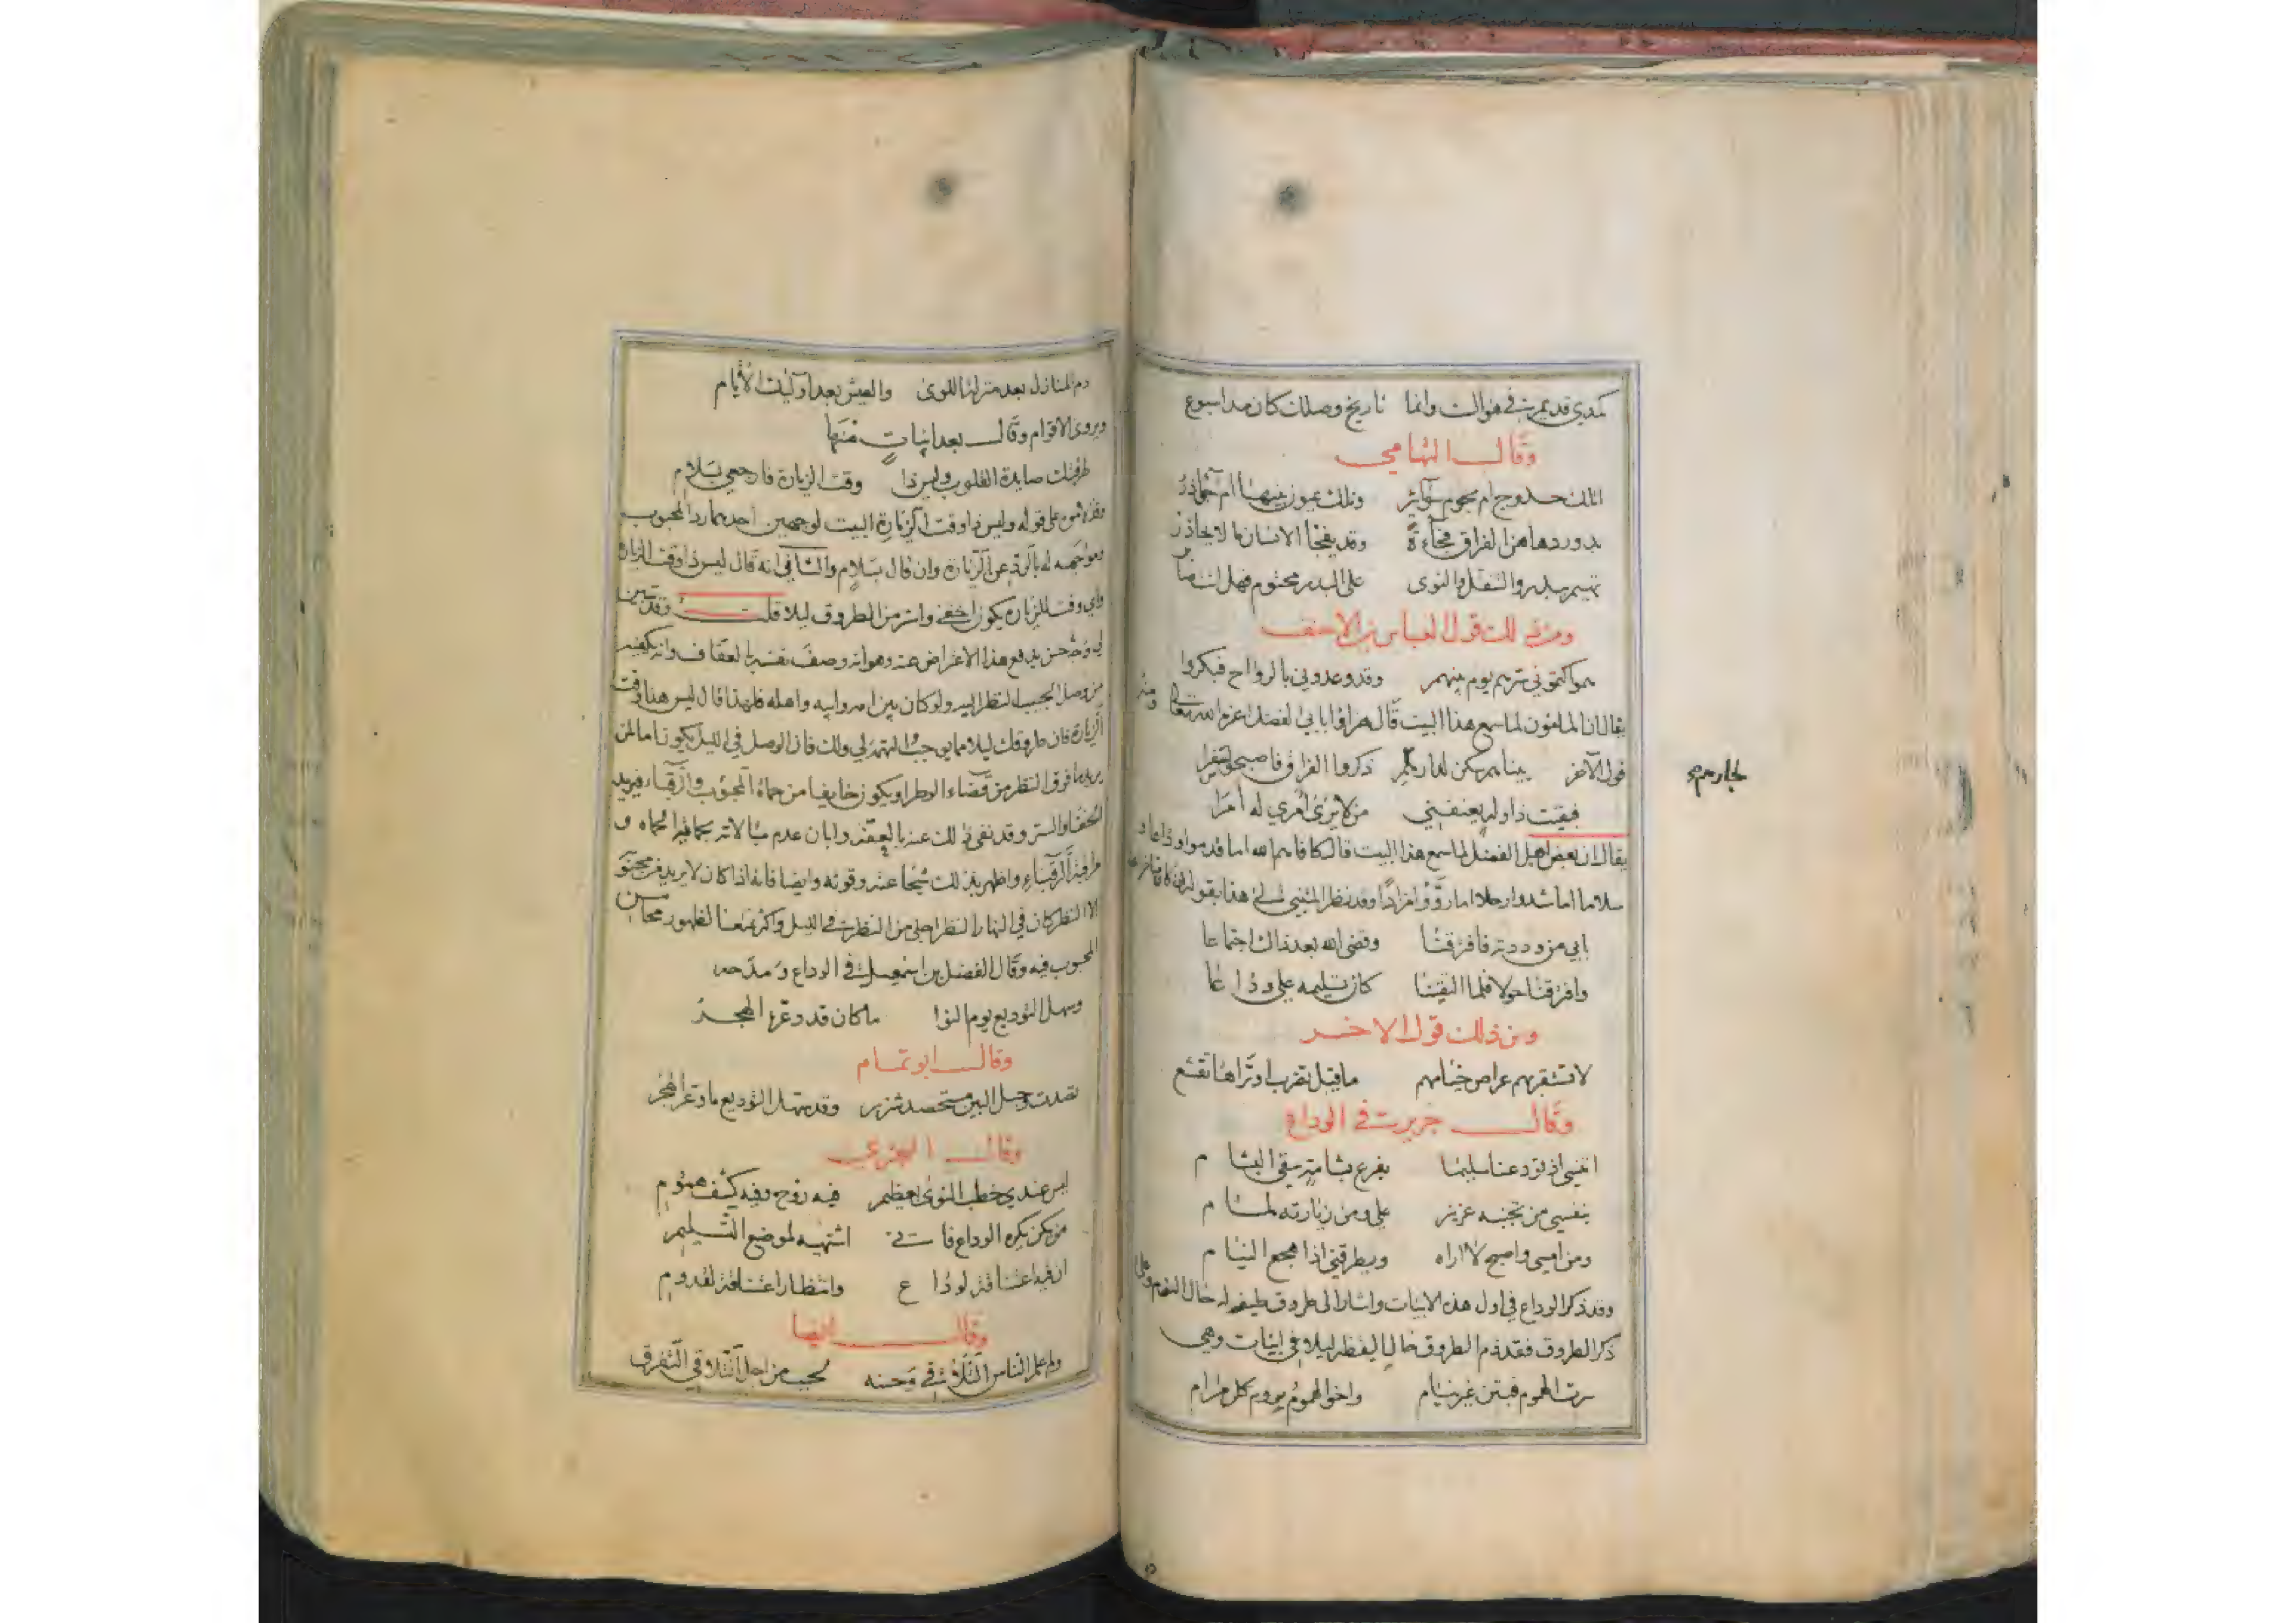 كمدي قديم في هواك وانما تاريخ وصلك كان مذ اسبوع
وقال التهامي
اتلك حدوج ام نجوم سوائر وتلك بدور بينها ام جآذر
بدور دهاهن الفراق فجاءة وقد يفجأ الانسان ما لا يحاذر
بسير والتنقل والنوى على البدر محتوم فهل انت
ومن ذلك قول العباس بن الاحنف
هموا كتموني سيرهم يوم بينهم وقد وعدوني بالرواح فبكروا
يقال ان المامون لما سمع هذا البيت قال هزاؤا بابي الفضل اعزه الله تعالى ومنه
قول الآخر بينا هم سكن لدارهم ذكروا الفراق فاصبحوا سفرا
لجارهم صح
فبقيت ذا وله يعنفني من لا يرى امري له امرا
يقال ان بعض اهل الفضل لما سمع هذا البيت قال كافاهم الله اما قدموا وداعا و
سلاما اما شدوا رحلا اما وقد نظر المتنبي الى هذا بقوله
بابي من وددته فافترقنا وقضى الله بعد ذاك اجتماعا
وافترقنا حولا فلما التقينا كان تسليمه علي وداعا
ومن ذلك قول الاخر
لا تستقر بهم عراص خيامهم ما قبل تضرب او تراها تقشع
وقال جرير في الوداع
اتنسى اذ تودعنا سليمى بفرع بشامة سقي البشام
بنفسي من تجنبه عزيز علي ومن زيارته لمام
ومن امسي واصبح لا اراه ويطرقني اذا هجع النيام
وقد ذكر الوداع في اول هذه الابيات واشار الى طروق طيفه له حال النوم وعلى
ذكر الطروق فقد ذم الطروق خاليا ليلا في ابيات وهي
سرت الهموم فبتن غير نيام واخو الهموم يروم كل مرام
ذم المنازل بعد منزلة اللوى والعيش بعد اوليك الأيام
ويروى الاقوام وقال بعد ابيات منها
طرقتك صايدة القلوب وليس ذا وقت الزيارة فارجعي بسلام
على قوله وليس ذا وقت الزيارة البيت لوجهين احدهما رد المحبوب
ومواجهه له بالرد عن الزيارة وان قال بسلام والثاني انه قال ليس ذا وقت الزيارة
واي وقت للزيارة يكون اخفى واستر من الطروق ليلا قلت وقد تبين
لي وجه حسن يدفع هذا الاعتراض عنه وهو انه وصف نفسه بالعفاف وانه يكفيه
من وصل الحبيب النظر اليه ولو كان بين امه وابيه واهله فلهذا قال ليس هذا وقت
الزيارة فان طروقك ليلا مما يوجب التهمة لي ولك فان الوصل في الليل يكون تاما لمن
يريد ما فوق النظر من قضاء الوطر او يكون خايفا من حماة المحبوب والرقباء فيريد
الخفاء والستر وقد نفى ذلك عنه بالعفة وابان عدم مبالاته بحماة و
مراقبة الرقباء واظهر بذلك شجاعته وقوته وايضا فانه اذا كان لا يريد من محبوبه
الا النظر كان في النهار النظر اجلى من النظر في الليل واكثر تمتعا لظهور محاسن
المحبوب فيه وقال الفضل بن اسمعيل في الوداع ومدحه
وسهل التوديع يوم النوا ما كان قد وعره الهجر
وقال ابو تمام
تصدت وحبل البين مستحصد شزر وقد سهل التوديع ما وعر الهجر
وقال البحتري
ليس عندي خطب النوى بعظيم فيه روح وفيه كشف هموم
من يكن يكره الوداع فاني اشتهيه لموضع التسليم
ان فيه اعتناقة لوداع وانتظار اعتناقة لقدوم
وقال ايضا
ولم اعلم الناس التلاقي وحسنه تحبب من اجل التلاقي التفرق